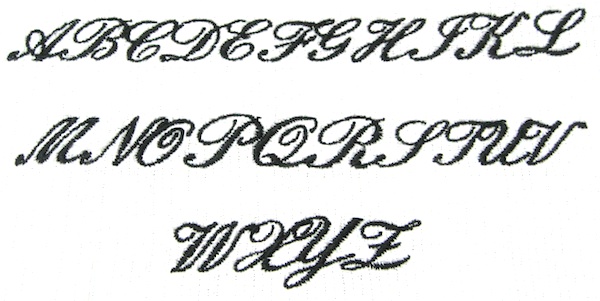 ABCDEFGHIKL
MNOPQRSTUV
WXYZ